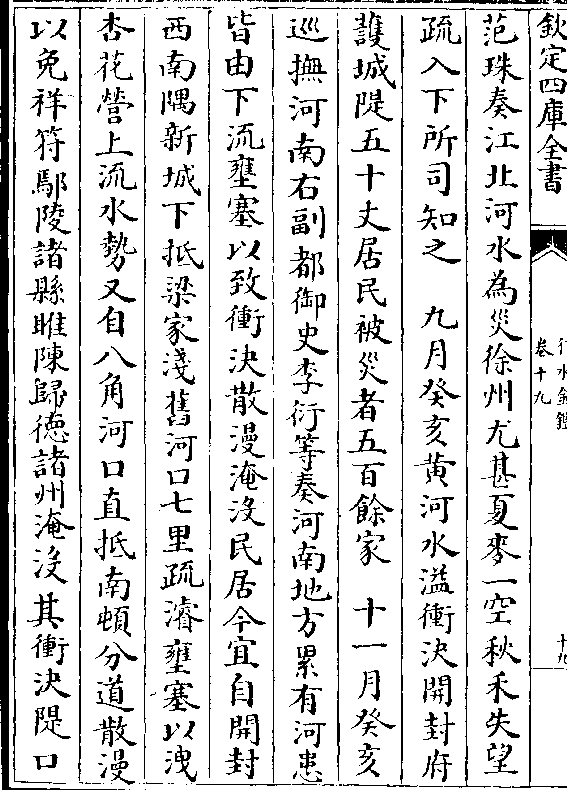 欽定四庫全書
行水金鑑
卷十九
十九
范珠奏江北河水為災徐州尤甚夏麥一空秋禾失望
疏入下所司知之　九月癸亥黄河水溢衝決開封府
護城隄五十丈居民被災者五百餘家　十一月癸亥
巡撫河南右副都御史李衍等奏河南地方累有河患
皆由下流壅塞以致衝決散漫淹没民居今宜自開封
西南隅新城下抵梁家淺舊河口七里疏濬壅塞以洩
杏花營上流水勢又自八角河口直抵南頓分道散漫
以免祥符鄢陵諸縣睢陳歸徳諸州淹没其衝決隄口